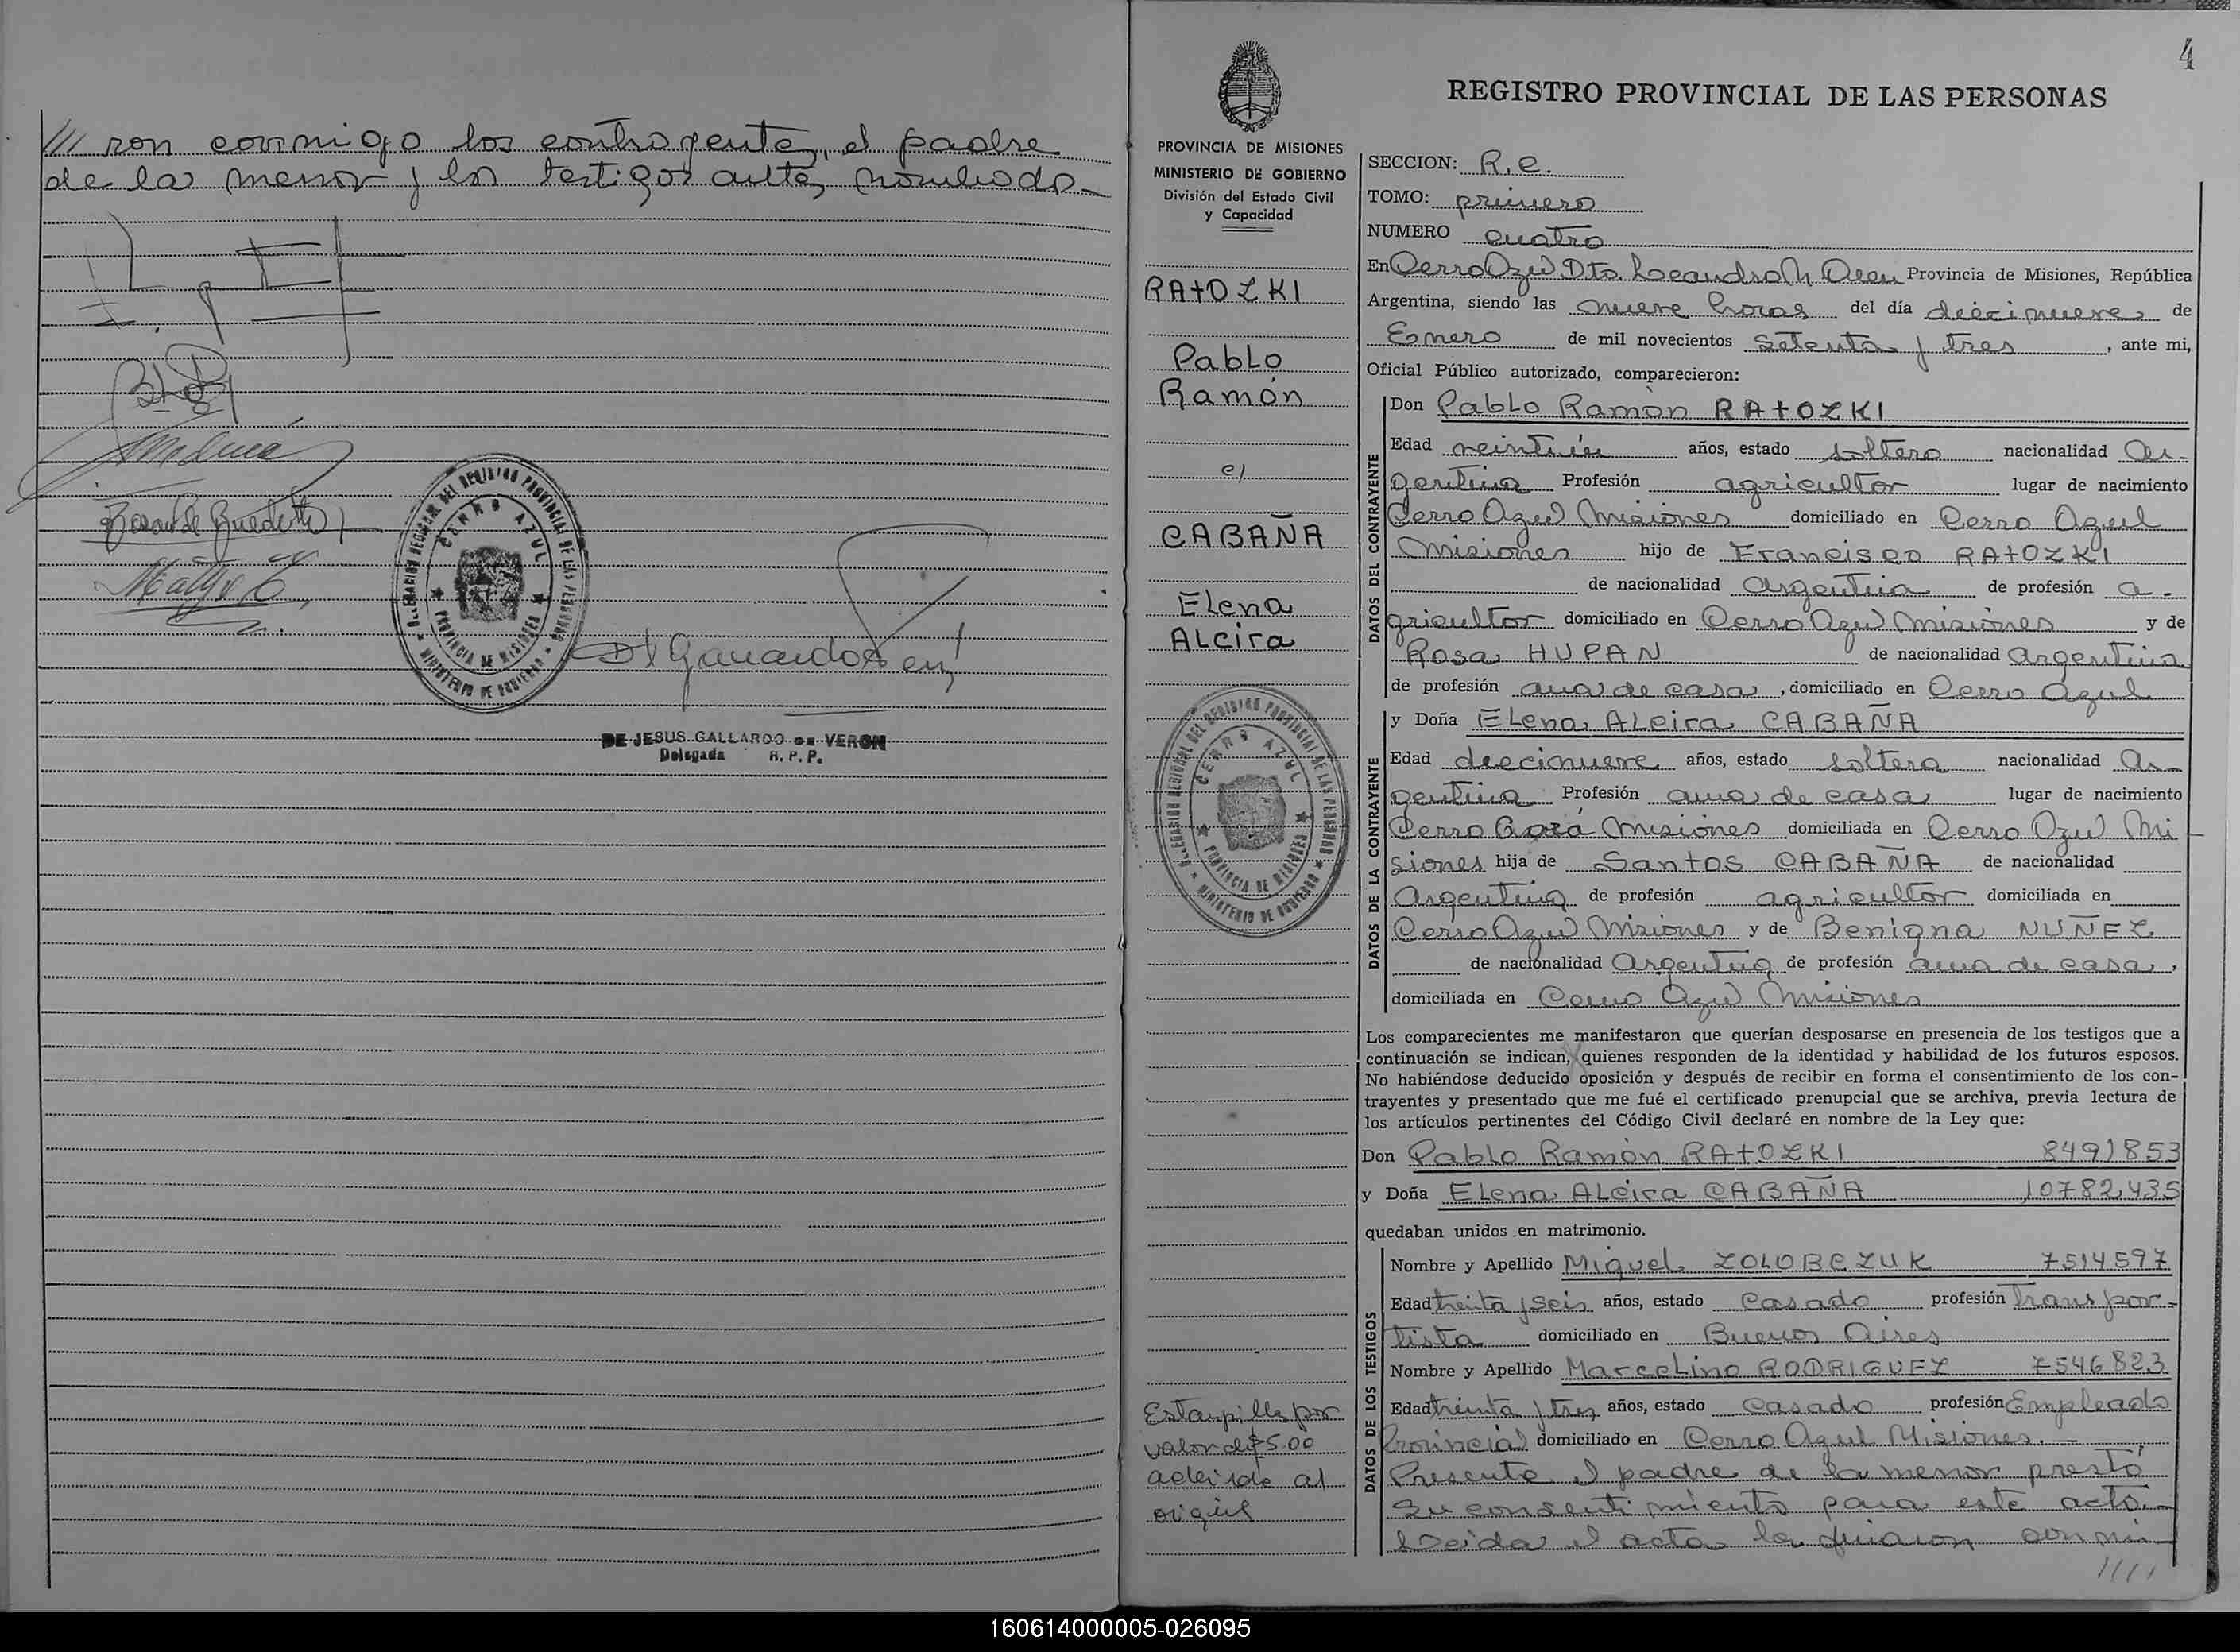 /// ron conmigo los contrayentes, el padre
de la menor y los testigos antes nombrados-
DELEGACION REGIONAL DEL REGISTRO PROVINCIAL DE LAS PERSONAS
CERRO AZUL
PROVINCIA DE MISIONES
MINISTERIO DE GOBIERNO
DE JESUS GALLARDO DE VERON
Delegada R. P. P.
4
REGISTRO PROVINCIAL DE LAS PERSONAS
PROVINCIA DE MISIONES
MINISTERIO DE GOBIERNO
División del Estado Civil
y Capacidad
RATOZKI
Pablo
Ramón
c/
CABAÑA
Elena
Alcira
DELEGACION REGIONAL DEL REGISTRO PROVINCIAL DE LAS PERSONAS
CERRO AZUL
PROVINCIA DE MISIONES
MINISTERIO DE GOBIERNO
Estampilla por
valor de $5.00
aderida al
SECCION: R.e.
TOMO: primero
NUMERO cuatro
En Cerro Azul Dto. Leandro N Alem Provincia de Misiones, República
Argentina, siendo las nueve horas del día diecinueve de
Enero de mil novecientos setenta y tres, ante mi,
Oficial Público autorizado, comparecieron:
DATOS DEL CONTRAYENTE
Don Pablo Ramón RATOZKI
Edad veintiún años, estado soltero nacionalidad Ar-
gentina Profesión agricultor lugar de nacimiento
Cerro Azul Misiones domiciliado en Cerro Azul
Misiones hijo de Francisco RATOZKI
de nacionalidad Argentina de profesión a-
gricultor domiciliado en Cerro Azul Misiones y de
Rosa HUPAN de nacionalidad Argentina
de profesión ama de casa, domiciliado en Cerro Azul
DATOS DE LA CONTRAYENTE
y Doña Elena Alcira CABAÑA
Edad diecinueve años, estado soltera nacionalidad Ar-
gentina Profesión ama de casa lugar de nacimiento
Cerro Corá Misiones domiciliada en Cerro Azul Mi
siones hija de Santos CABAÑA de nacionalidad
Argentina de profesión agricultor domiciliada en
Cerro Azul Misiones y de Benigna NUÑEZ
de nacionalidad Argentina de profesión ama de casa,
domiciliada en Cerro Azul Misiones
Los comparecientes me manifestaron que querían desposarse en presencia de los testigos que a
continuación se indican, quienes responden de la identidad y habilidad de los futuros esposos.
No habiéndose deducido oposición y después de recibir en forma el consentimiento de los con-
trayentes y presentado que me fué el certificado prenupcial que se archiva, previa lectura de
los artículos pertinentes del Código Civil declaré en nombre de la Ley que:
Don Pablo Ramón RATOZKI 8491853
y Doña Elena Alcira CABAÑA 10782435
quedaban unidos en matrimonio.
DATOS DE LOS TESTIGOS
Nombre y Apellido Miguel ZOLOBCZUK 7514597
Edad treinta y seis años, estado casado profesión Transpor-
tista domiciliado en Buenos Aires
Nombre y Apellido Marcelino RODRIGUEZ 7546823
Edad treinta y tres años, estado casado profesión Empleado
Provincial domiciliado en Cerro Azul Misiones.-
Presente el padre de la menor prestó
su consentimiento para este acto.-
Leida el acta la firmaron conmi
////
160614000005-026095